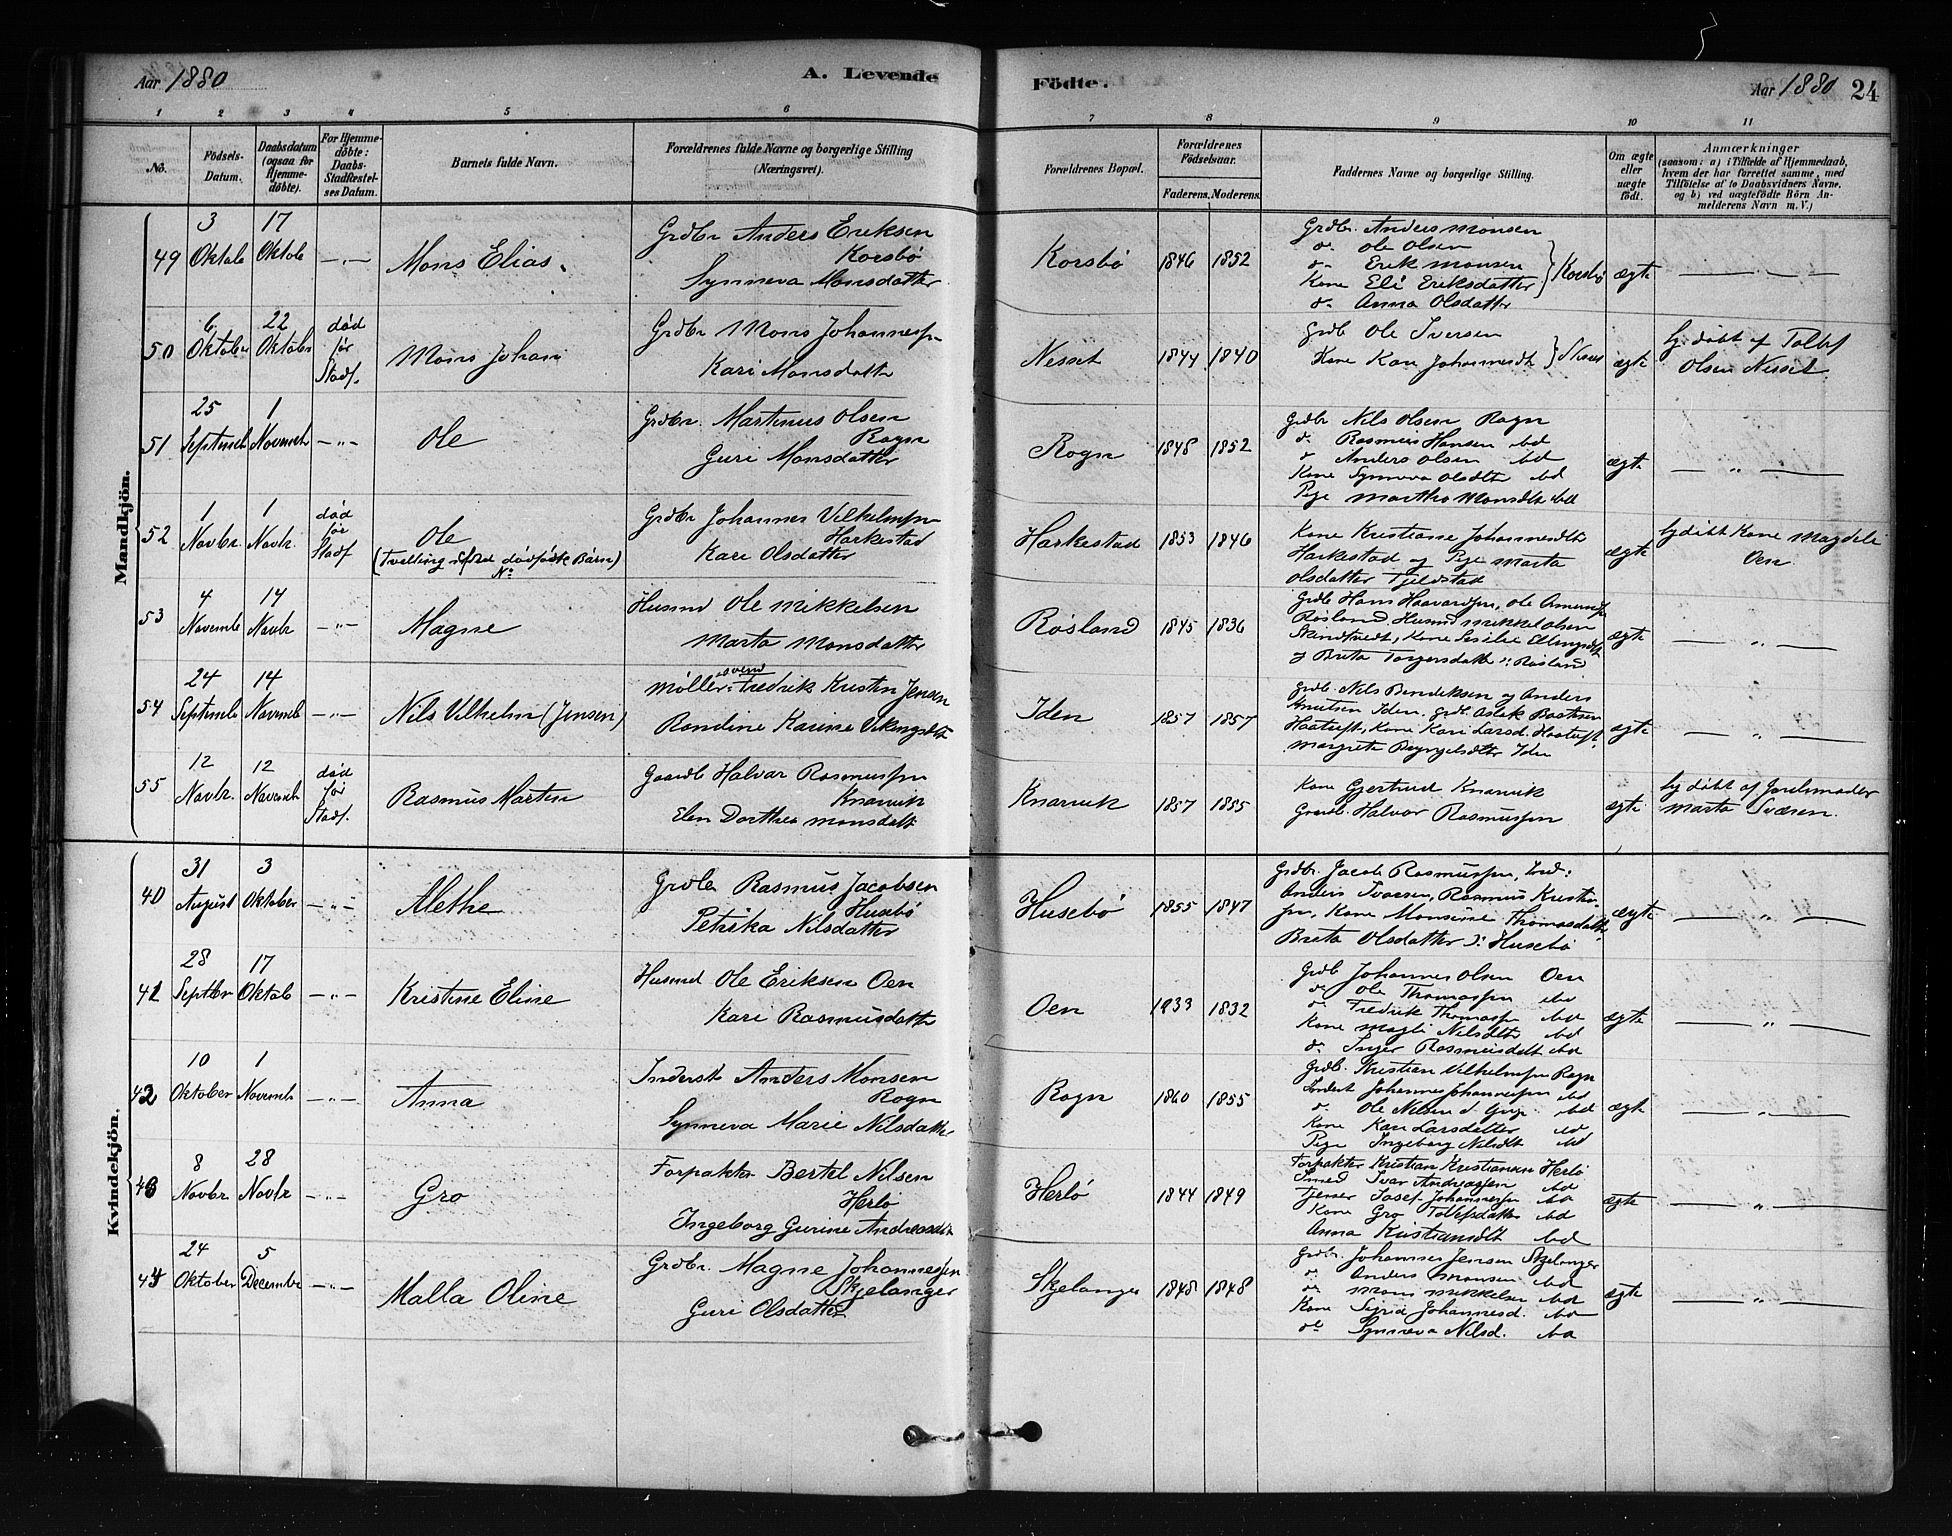 Aar 1880 A. Levende Födte. Aar 1880 24
1 2 3 4 5 6 7 8 9 10 11
No. Födsels-Datum. Daabsdatum (ogsaa for Hjemmedöbte). For Hjemmedöbte: Daabs-Stadfæstelses Datum. Barnets fulde Navn. Forældrenes fulde Navne og borgerlige Stilling (Næringsvei). Forældrenes Bopæl. Forældrenes Födselsaar. Faderens. Moderens. Faddernes Navne og borgerlige Stilling. Om ægte eller uægte födt. Anmærkninger (saasom: a) i Tilfælde af Hjemmedaab, hvem der har forrettet samme, med Tilföielse af to Daabsvidners Navne, og b) ved uægtefödte Börn Anmelderens Navn m. V.)
Mandkjön.
49 3 Oktob 17 Oktob —"— Mons Elias. Grdbr Anders Eriksen Korsbø Synneva Monsdatter Korsbø 1846 1852 Grdbr. Anders Monsen
do Ole Olsen
do Erik Monsen
Kone Eli Eriksdatter } Korsbø
do Anna Olsdatter
ægte —"—
50 6 Oktober 22 Oktober død før Stadf. Mons Johan Grdbr Mons Johannesen Kari Monsdatter Nesset 1844 1840 grdb Ole Iversen
Kone Kari Johannesdt
ægte hj. døbt af Tollef Olsen Nesset
51 25 Septemb 1 Novemb —"— Ole Grdbr. Martinus Olsen Rogn Guri Monsdatter Rogn 1848 1852 Grdbr Nils Olsen Rogn
do Rasmus Hansen ibd
do Anders Olsen ibd
Kone Synneva Olsdtr ibd
Pige Martha Monsdt ibd
ægte —"—
52 1 Novbr. 1 Novbr. død før Stadf Ole
(Tvilling af dødfødte Børn) No
Grdbr Johannes Vilhelmsen Harkestad Kari Olsdatter Harkestad 1853 1846 Kone Kristianse Johannesdtr
Harkestad og Pige Marta
Olsdatter Tjeldstad
ægte hj døbt Kone Magdeli Oen
53 4 Novemb 14 Novbr —"— Magne Husmd Ole Mikkelsen Marta Monsdatter Røsland 1845 1836 Grdb Hans Haavardsen, Ole
Røsland, Husmd Mikkel Olsen
Kone
og Brita Torgersdatter Røsland
ægte —"—
54 24 Septemb 14 Novemb —"— Nils Vilhelm (Jensen) Møllersvend Fredrik Kristin Jensen Rondine Karine Vikingsdtr Iden 1857 1857 Grdb. Nils Bendiksen og Anders
Knutsen Iden, grdb. Aslak Bastesen
Haatuft, Kone Kari Larsd. Haatuft
Margrete Iden
ægte —"—
55 12 Novbr. 12 Novemb død før Stadf. Rasmus Martin Gaardb Halvar Rasmussen Knarvik Elen Dorthea Monsdatt Knarvik 1857 1855 Kone Gjertrud Knarvik
Gaardb. Halvor Rasmussen
ægte hj døbt af Jordemoder Marta Sværen.
Kvindekjön.
40 31 August 3 Oktober —"— Alethe Grdbr Rasmus Jacobsen Husebø Petrika Nilsdatter Husebø 1855 1847 Grdbr. Jacob Rasmussen, Ind:
Anders Ivarsen, Rasmus Kristensen, Kone Monsine Thomasdatter
Brita Olsdatter Husebø
ægte —"—
41 28 Septbr 17 Oktob —"— Kristine Eline Husmd Ole Eriksen Oen Kari Rasmusdatter Oen 1833 1832 Grdb Johannes Olsen Oen
do Ole Thomassen ibd
do Fredrik Thomassen ibd
Kone Magli Nilsdtr ibd
do Inger Rasmusdatt ibd
ægte —"—
42 10 Oktober 1 Novemb —"— Anna Inderst Anders Monsen Rogn Synneva Marie Nilsdatter Rogn 1860 1855 Grdb. Kristian Vilhelmsen Rogn
Inderst Johannes Johannessen ibd
do Ole Nilsen ibd
Kone Kari Larsdatter ibd
Pige Ingeborg Nilsdt ibd
ægt —"—
43 8 Novbr 28 Novbr —"— Gro Forpakter Bertel Nilsen Herlø Ingeborg Gurine Andreasdt Herlø 1844 1849 Forpakter Kristian Kristiansen Herlø
Smed Ivar Andreassen ibd
Tjener Josef Johannessen ibd
Kone Gro Tollefsdatter ibd
Anna Kristiansdt ibd
ægte —"—
44 24 Oktober 5 Decembr —"— Malla Oline Grdbr. Magne Johannessen Skjelanger Guri Olsdatter Skjelanger 1848 1848 Grdbr. Johannes Jensen Skjelanger
do Anders Monsen ibd
do Mons Mikkelsen ibd
Kone Sigrid Johannesd. ibd
do Synneva Nilsd. ibd
ægte —"—